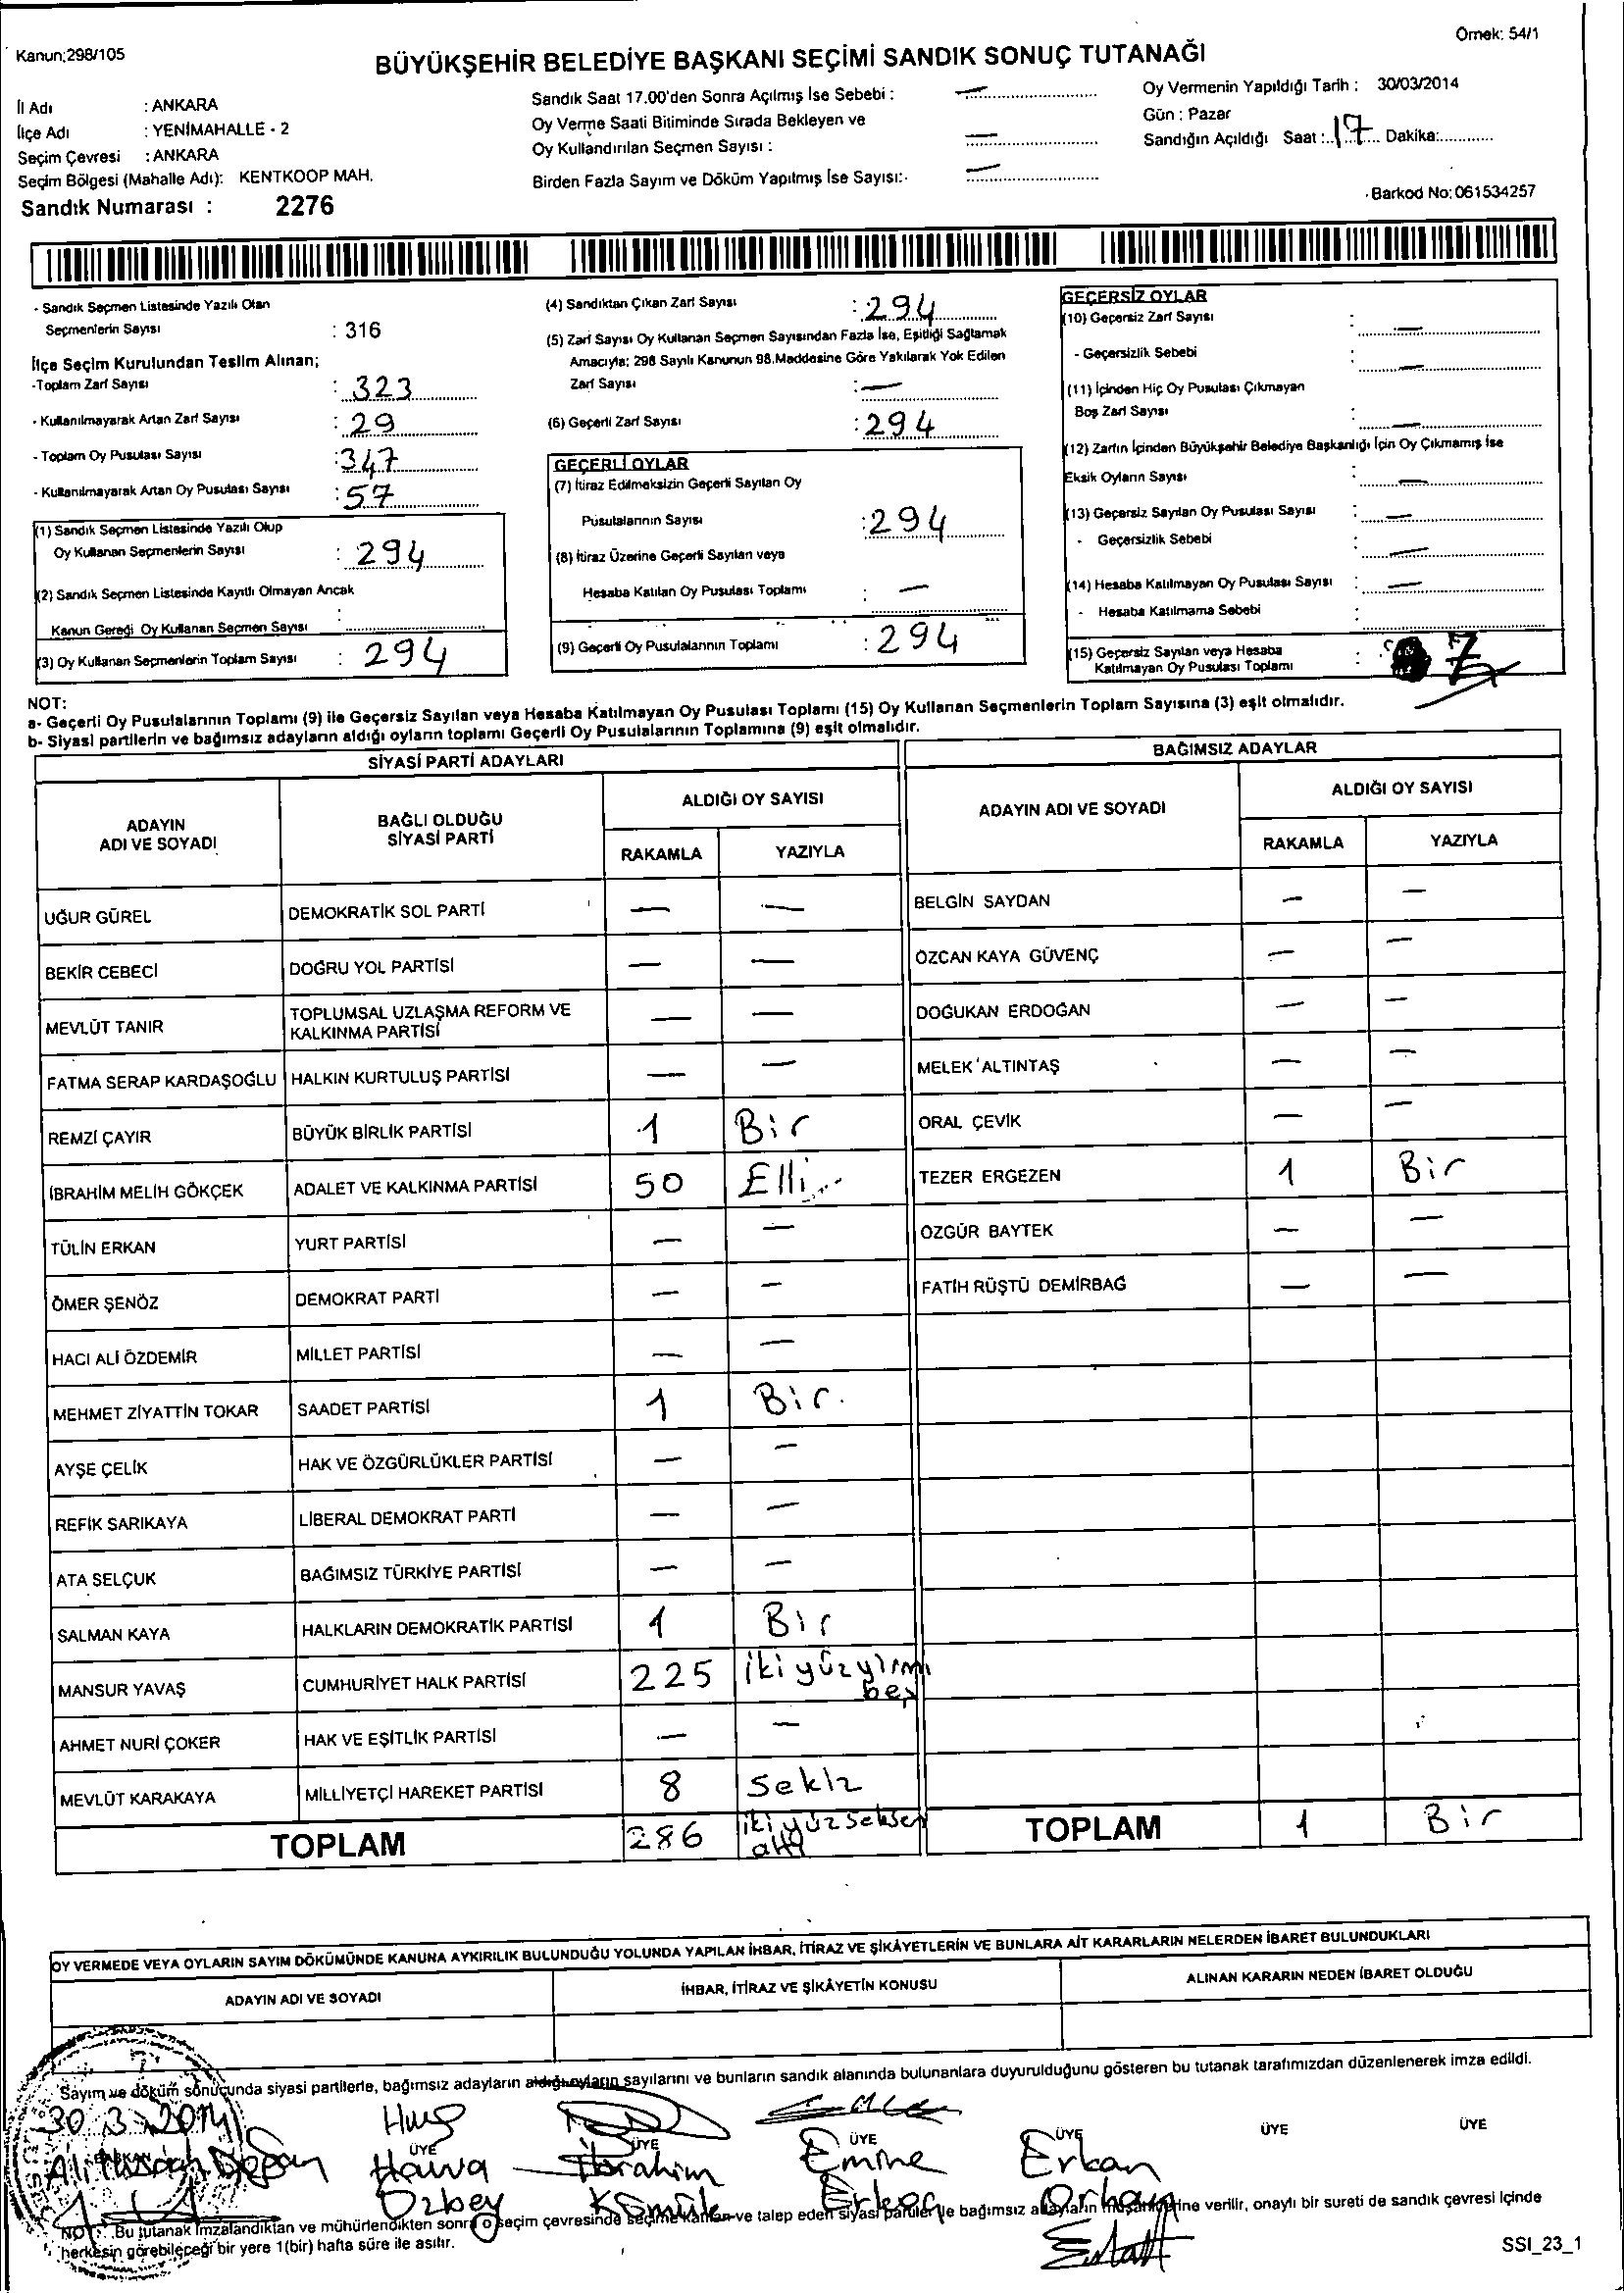 Kanun;298/105
Örnek: 54/1
BÜYÜKŞEHİR BELEDİYE BAŞKANI SEÇİMİ SANDIK SONUÇ TUTANAĞI
İl Adı : ANKARA
İlçe Adı : YENİMAHALLE - 2
Seçim Çevresi : ANKARA
Seçim Bölgesi (Mahalle Adı): KENTKOOP MAH.
Sandık Numarası : 2276
Sandık Saat 17.00'den Sonra Açılmış İse Sebebi : —
Oy Verme Saati Bitiminde Sırada Bekleyen ve
Oy Kullandırılan Seçmen Sayısı : —
Birden Fazla Sayım ve Döküm Yapılmış İse Sayısı: —
Oy Vermenin Yapıldığı Tarih : 30/03/2014
Gün : Pazar
Sandığın Açıldığı Saat : 17 Dakika:
Barkod No: 061534257
- Sandık Seçmen Listesinde Yazılı Olan
Seçmenlerin Sayısı : 316
İlçe Seçim Kurulundan Teslim Alınan;
-Toplam Zarf Sayısı : 323
- Kullanılmayarak Artan Zarf Sayısı : 29
- Toplam Oy Pusulası Sayısı : 347
- Kullanılmayarak Artan Oy Pusulası Sayısı : 57
(1) Sandık Seçmen Listesinde Yazılı Olup
Oy Kullanan Seçmenlerin Sayısı : 294
(2) Sandık Seçmen Listesinde Kayıtlı Olmayan Ancak
Kanun Gereği Oy Kullanan Seçmen Sayısı :
(3) Oy Kullanan Seçmenlerin Toplam Sayısı : 294
(4) Sandıktan Çıkan Zarf Sayısı : 294
(5) Zarf Sayısı Oy Kullanan Seçmen Sayısından Fazla İse, Eşitliği Sağlamak
Amacıyla; 298 Sayılı Kanunun 98.Maddesine Göre Yakılarak Yok Edilen
Zarf Sayısı : —
(6) Geçerli Zarf Sayısı : 294
GEÇERLİ OYLAR
(7) İtiraz Edilmeksizin Geçerli Sayılan Oy
Pusulalarının Sayısı : 294
(8) İtiraz Üzerine Geçerli Sayılan veya
Hesaba Katılan Oy Pusulası Toplamı : —
(9) Geçerli Oy Pusulalarının Toplamı : 294
GEÇERSİZ OYLAR
(10) Geçersiz Zarf Sayısı : —
- Geçersizlik Sebebi : —
(11) İçinden Hiç Oy Pusulası Çıkmayan
Boş Zarf Sayısı : —
(12) Zarfın İçinden Büyükşehir Belediye Başkanlığı İçin Oy Çıkmamış İse
Eksik Oyların Sayısı : —
(13) Geçersiz Sayılan Oy Pusulası Sayısı : —
- Geçersizlik Sebebi : —
(14) Hesaba Katılmayan Oy Pusulası Sayısı : —
- Hesaba Katılmama Sebebi :
(15) Geçersiz Sayılan veya Hesaba
Katılmayan Oy Pusulası Toplamı : 7
NOT:
a- Geçerli Oy Pusulalarının Toplamı (9) ile Geçersiz Sayılan veya Hesaba Katılmayan Oy Pusulası Toplamı (15) Oy Kullanan Seçmenlerin Toplam Sayısına (3) eşit olmalıdır.
b- Siyasi partilerin ve bağımsız adayların aldığı oyların toplamı Geçerli Oy Pusulalarının Toplamına (9) eşit olmalıdır.
SİYASİ PARTİ ADAYLARI
ADAYIN ADI VE SOYADI BAĞLI OLDUĞU SİYASİ PARTİ ALDIĞI OY SAYISI
RAKAMLA YAZIYLA
UĞUR GÜREL DEMOKRATİK SOL PARTİ — —
BEKİR CEBECİ DOĞRU YOL PARTİSİ — —
MEVLÜT TANIR TOPLUMSAL UZLAŞMA REFORM VE KALKINMA PARTİSİ — —
FATMA SERAP KARDAŞOĞLU HALKIN KURTULUŞ PARTİSİ — —
REMZİ ÇAYIR BÜYÜK BİRLİK PARTİSİ 1 Bir
İBRAHİM MELİH GÖKÇEK ADALET VE KALKINMA PARTİSİ 50 Elli
TÜLİN ERKAN YURT PARTİSİ — —
ÖMER ŞENÖZ DEMOKRAT PARTİ — —
HACI ALİ ÖZDEMİR MİLLET PARTİSİ — —
MEHMET ZİYATTİN TOKAR SAADET PARTİSİ 1 Bir.
AYŞE ÇELİK HAK VE ÖZGÜRLÜKLER PARTİSİ — —
REFİK SARIKAYA LİBERAL DEMOKRAT PARTİ — —
ATA SELÇUK BAĞIMSIZ TÜRKİYE PARTİSİ — —
SALMAN KAYA HALKLARIN DEMOKRATİK PARTİSİ 1 Bir
MANSUR YAVAŞ CUMHURİYET HALK PARTİSİ 225 iki yüz yirmi beş
AHMET NURİ ÇOKER HAK VE EŞİTLİK PARTİSİ — —
MEVLÜT KARAKAYA MİLLİYETÇİ HAREKET PARTİSİ 8 Sekiz
TOPLAM 286 iki yüz seksen altı
BAĞIMSIZ ADAYLAR
ADAYIN ADI VE SOYADI ALDIĞI OY SAYISI
RAKAMLA YAZIYLA
BELGİN SAYDAN — —
ÖZCAN KAYA GÜVENÇ — —
DOĞUKAN ERDOĞAN — —
MELEK ALTINTAŞ — —
ORAL ÇEVİK — —
TEZER ERGEZEN 1 Bir
ÖZGÜR BAYTEK — —
FATİH RÜŞTÜ DEMİRBAĞ — —
TOPLAM 1 Bir
OY VERMEDE VEYA OYLARIN SAYIM DÖKÜMÜNDE KANUNA AYKIRILIK BULUNDUĞU YOLUNDA YAPILAN İHBAR, İTİRAZ VE ŞİKÂYETLERİN VE BUNLARA AİT KARARLARIN NELERDEN İBARET BULUNDUKLARI
ADAYIN ADI VE SOYADI İHBAR, İTİRAZ VE ŞİKÂYETİN KONUSU ALINAN KARARIN NEDEN İBARET OLDUĞU
Sayım ve döküm sonucunda siyasi partilerle, bağımsız adayların aldığı oyların sayılarını ve bunların sandık alanında bulunanlara duyurulduğunu gösteren bu tutanak tarafımızdan düzenlenerek imza edildi.
30.3.2014
ÜYE ÜYE ÜYE ÜYE ÜYE ÜYE
Ali Doğan Havva İbrahim Emine Erkan
Özbey Kömürlü Orhan
NOT: Bu tutanak imzalandıktan ve mühürlendikten sonra o seçim çevresinde seçime katılan ve talep eden siyasi partiler ile bağımsız adayların müşahitlerine verilir, onaylı bir sureti de sandık çevresi içinde
herkesin görebileceği bir yere 1(bir) hafta süre ile asılır.
SSI_23_1